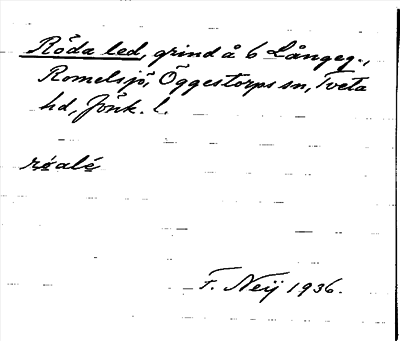 Röda led, grind å 6 Långeg.,
Romelsjö, Öggestorps sn, Tveta
hd, Jönk. l.
rø̱alé̱
F. Neij 1936.